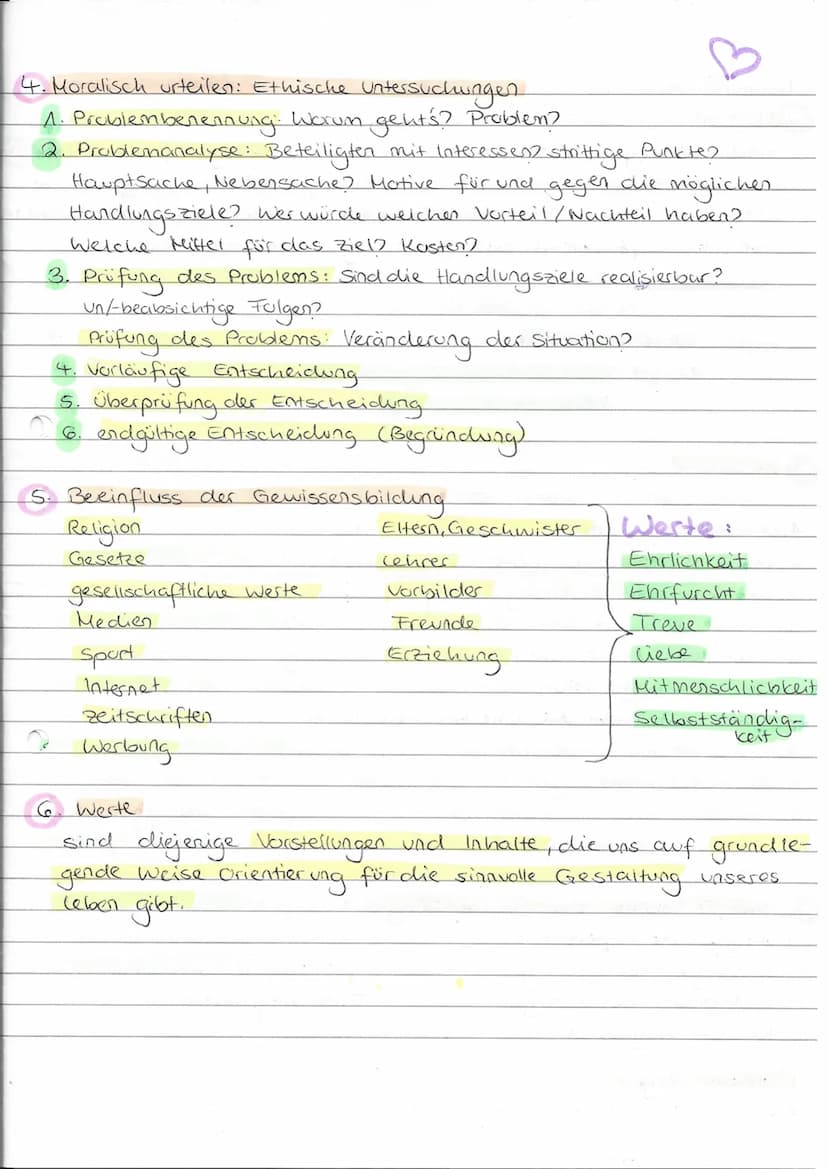 4. Moralisch urteilen: Ethische Untersuchungen
1. Problembenennung: Worum geht's? Problem?
2. Problemanalyse: Beteiligten mit Interessen? strittige Punkte?
Hauptsache, Nebensache? Motive für und gegen die möglichen
Handlungsziele? Wer würde welchen Vorteil/Nachteil haben?
Welche Mittel für das Ziel? Kosten?
3. Prüfung des Problems: Sind die Handlungsziele realisierbar?
un/-beabsichtige Folgen?
Prüfung des Problems: Veränderung der Situation?
4. Vorläufige Entscheidung
5. Überprüfung der Entscheidung
6. endgültige Entscheidung (Begründung)
5. Beeinfluss der Gewissensbildung
Religion Eltern, Geschwister Werte:
Gesetze Lehrer Ehrlichkeit
gesellschaftliche Werte Vorbilder Ehrfurcht
Medien Freunde Treue
Sport Erziehung Liebe
Internet Mitmenschlichkeit
Zeitschriften Selbstständig-
keit
Werbung
6. Werte
sind diejenige Vorstellungen und Inhalte, die uns auf grundle-
gende Weise Orientierung für die sinnvolle Gestaltung unseres
Leben gibt.